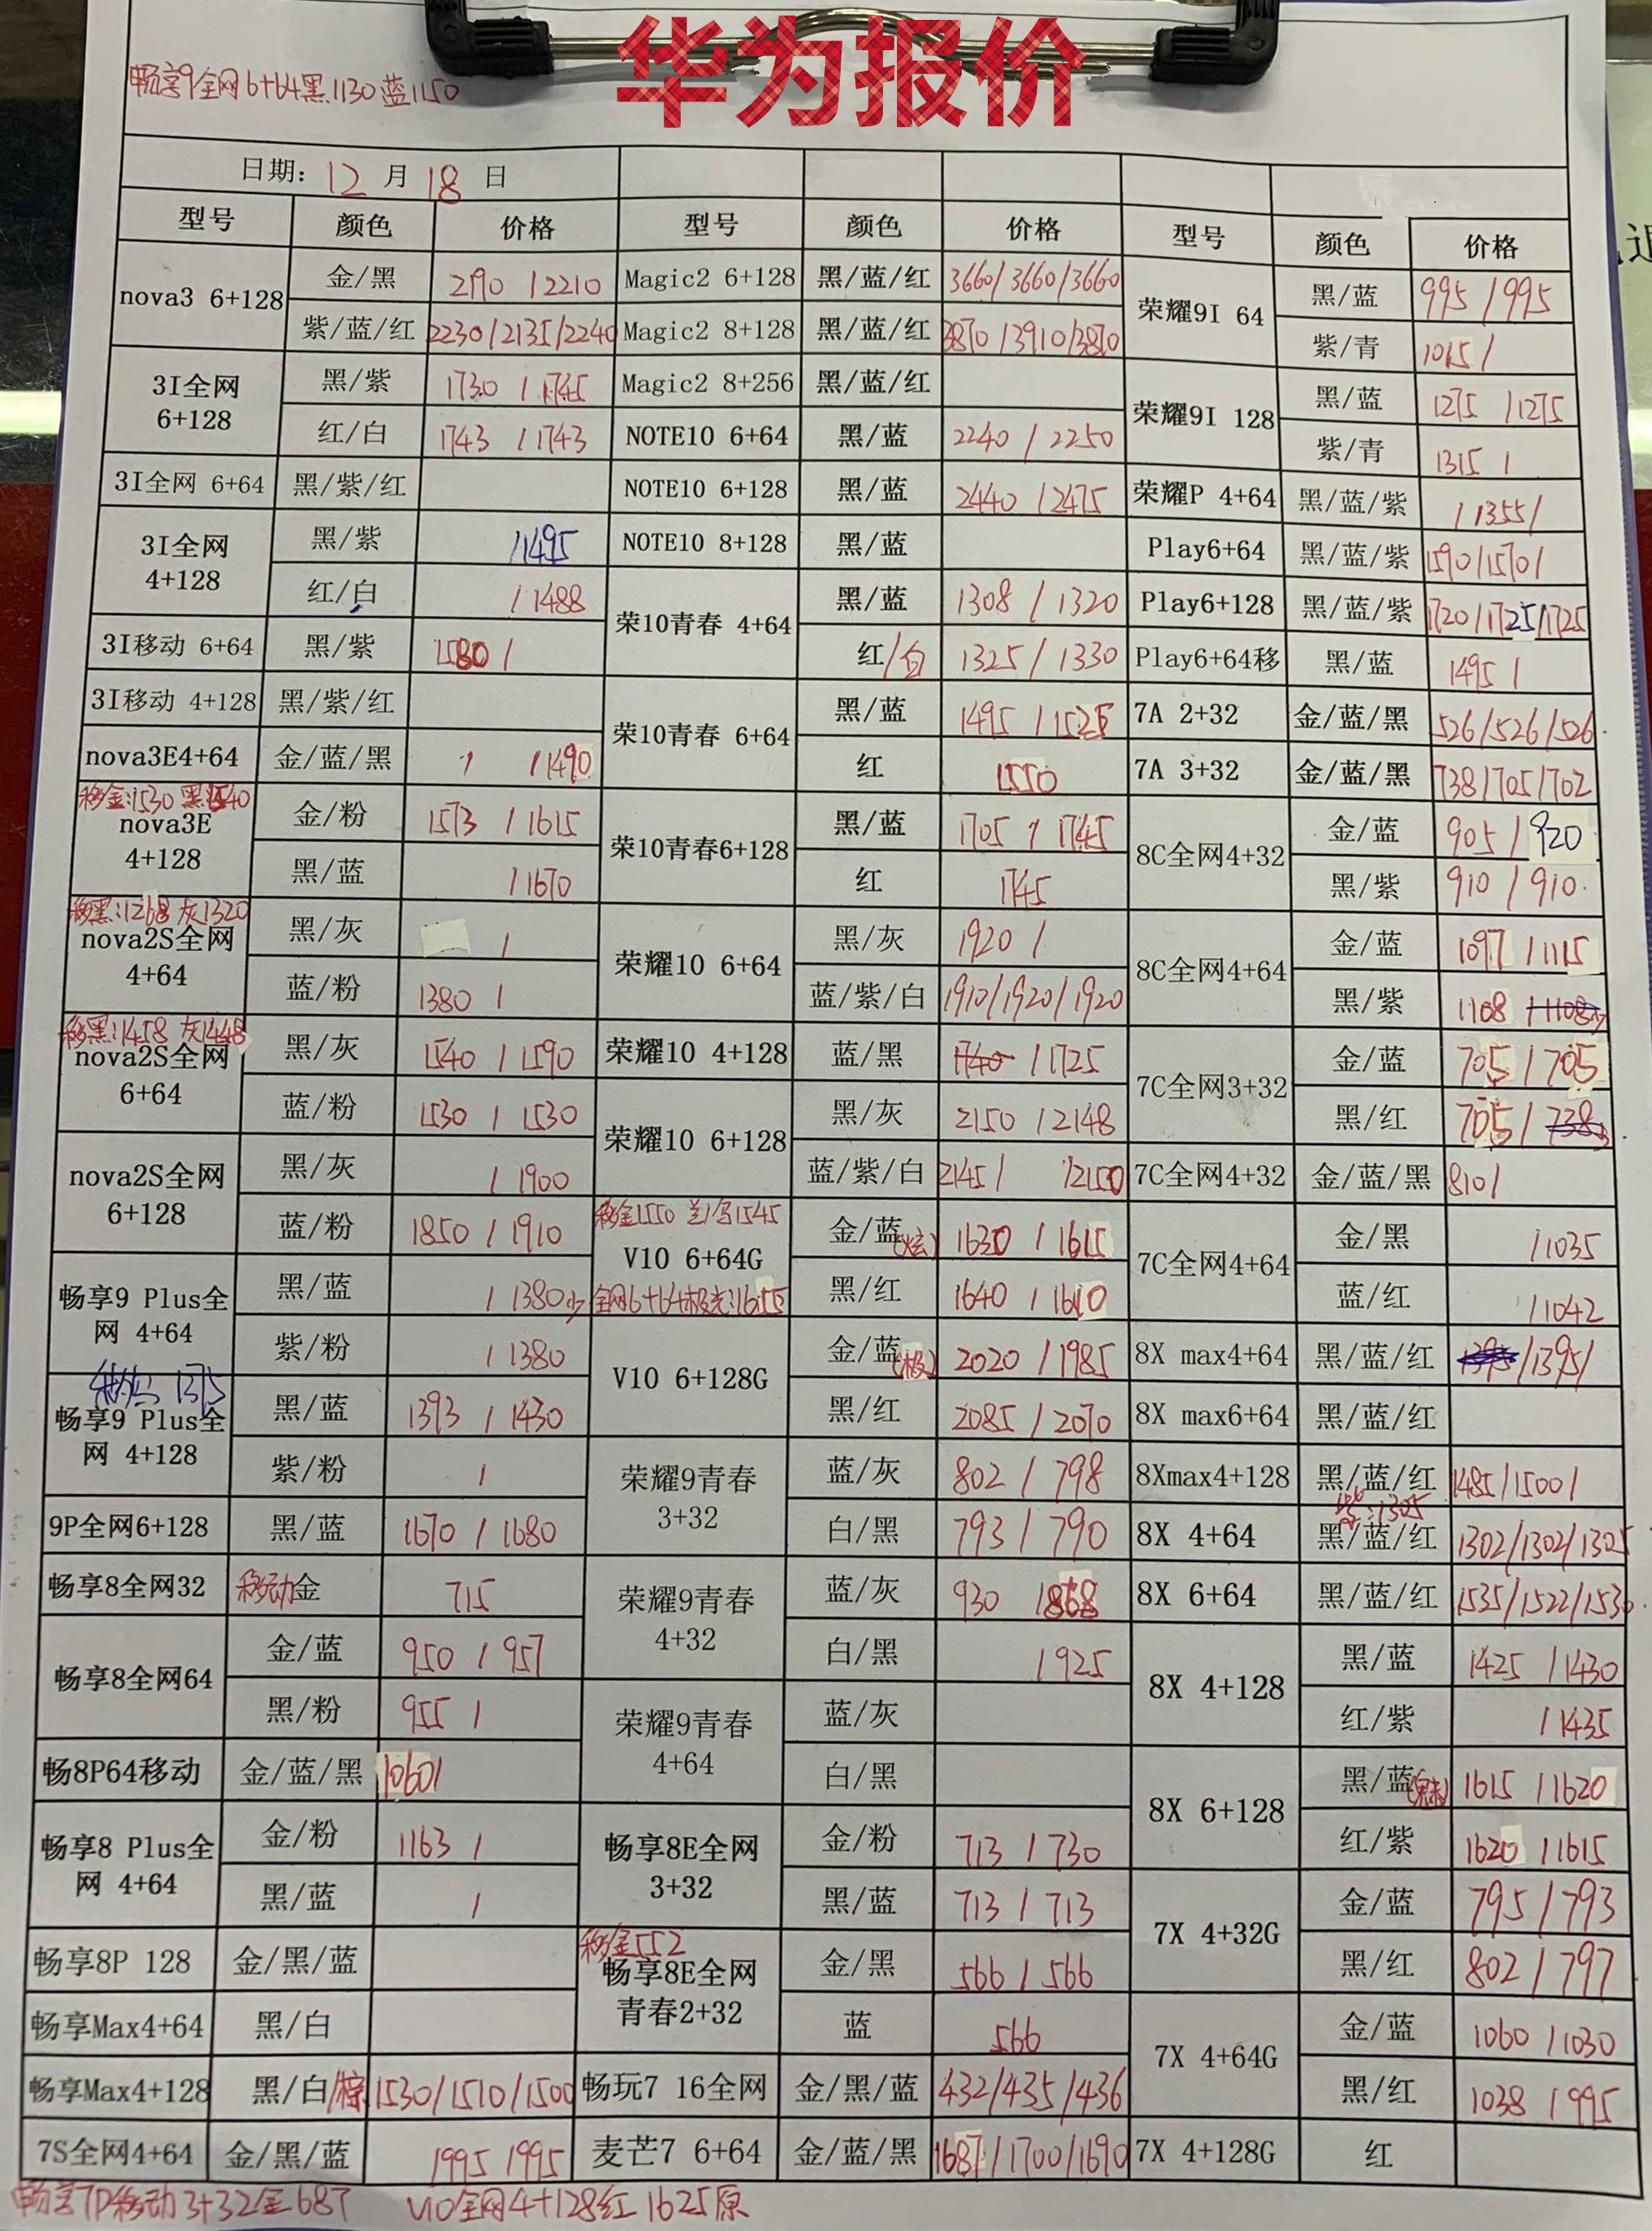 华为报价
畅享9全网6+64黑1130蓝1150
日期: 12 月 18 日
型号 颜色 价格 型号 颜色 价格 型号 颜色 价格
nova3 6+128 金/黑 2190 /2210
紫/蓝/红 2230/2135/2240
3I全网 6+128 黑/紫 1730 / 1745
红/白 1743 /1743
3I全网 6+64 黑/紫/红
3I全网 4+128 黑/紫 /1495
红/白 /1488
3I移动 6+64 黑/紫 1580 /
3I移动 4+128 黑/紫/红
nova3E4+64 金/蓝/黑 / /1490
移金:1530 黑1540
nova3E 4+128 金/粉 1573 /1615
黑/蓝 /1670
移黑:1268 灰1320
nova2S全网 4+64 黑/灰 /
蓝/粉 1380 /
移黑:1458 灰1448
nova2S全网 6+64 黑/灰 1540 / 1590
蓝/粉 1530 / 1530
nova2S全网 6+128 黑/灰 / 1900
蓝/粉 1850 / 1910
畅享9 Plus全网 4+64 黑/蓝 / 1380少
紫/粉 / 1380
1375
畅享9 Plus全网 4+128 黑/蓝 1393 / 1430
紫/粉 /
9P全网6+128 黑/蓝 1670 / 1680
畅享8全网32 移动金 715
畅享8全网64 金/蓝 950 / 957
黑/粉 955 /
畅8P64移动 金/蓝/黑 1060/
畅享8 Plus全网 4+64 金/粉 1163 /
黑/蓝 /
畅享8P 128 金/黑/蓝
畅享Max4+64 黑/白
畅享Max4+128 黑/白/棕 1530/1510/1500
7S全网4+64 金/黑/蓝 1995 /995
Magic2 6+128 黑/蓝/红 3660/3660/3660
Magic2 8+128 黑/蓝/红 3870/3910/3870
Magic2 8+256 黑/蓝/红
NOTE10 6+64 黑/蓝 2240 / 2250
NOTE10 6+128 黑/蓝 2440 /2475
NOTE10 8+128 黑/蓝
荣10青春 4+64 黑/蓝 1308 / 1320
红/白 1325 / 1330
荣10青春 6+64 黑/蓝 1495 /1525
红 1550
荣10青春6+128 黑/蓝 1705 / 1745
红 1745
荣耀10 6+64 黑/灰 1920 /
蓝/紫/白 1910/1920/1920
荣耀10 4+128 蓝/黑 1740 /1725
荣耀10 6+128 黑/灰 2150 /2148
蓝/紫/白 2145/ /2150
移金1550 1545
V10 6+64G 金/蓝(炫) 1630 /1615
全网6+64极光:1655
黑/红 1640 /1610
V10 6+128G 金/蓝(极) 2020 /1985
黑/红 2085 / 2070
荣耀9青春 3+32 蓝/灰 802 / 798
白/黑 793 / 790
荣耀9青春 4+32 蓝/灰 930 /868
白/黑 /925
荣耀9青春 4+64 蓝/灰
白/黑
畅享8E全网 3+32 金/粉 713 / 730
黑/蓝 713 / 713
移金552
畅享8E全网 青春2+32 金/黑 566 / 566
蓝 566
畅玩7 16全网 金/黑/蓝 432/435/436
麦芒7 6+64 金/蓝/黑 1687/1700/1690
荣耀9I 64 黑/蓝 995 /995
紫/青 1015 /
荣耀9I 128 黑/蓝 1275 /1275
紫/青 1315 /
荣耀P 4+64 黑/蓝/紫 /1355/
Play6+64 黑/蓝/紫 1590/1570/
Play6+128 黑/蓝/紫 1720/1725/1725
Play6+64移 黑/蓝 1495 /
7A 2+32 金/蓝/黑 526/526/526
7A 3+32 金/蓝/黑 738/705/702
8C全网4+32 金/蓝 905 / 920
黑/紫 910 / 910
8C全网4+64 金/蓝 1097 /1115
黑/紫 1108 /1108少
7C全网3+32 金/蓝 705 / 705
黑/红 705 / 738少
7C全网4+32 金/蓝/黑 810/
7C全网4+64 金/黑 /1035
蓝/红 /1042
8X max4+64 黑/蓝/红 1395/1395/
8X max6+64 黑/蓝/红
8Xmax4+128 黑/蓝/红 1485/1500/
紫:1305
8X 4+64 黑/蓝/红 1302/1302/1305
8X 6+64 黑/蓝/红 1535/1522/1530
8X 4+128 黑/蓝 1425 /1430
红/紫 /1435
8X 6+128 黑/蓝(魅) 1615 /1620
红/紫 1620 /1615
7X 4+32G 金/蓝 795 /793
黑/红 802 /797
7X 4+64G 金/蓝 1060 /1030
黑/红 1038 /995
7X 4+128G 红
畅享7P移动3+32金687 V10全网4+128红1625原